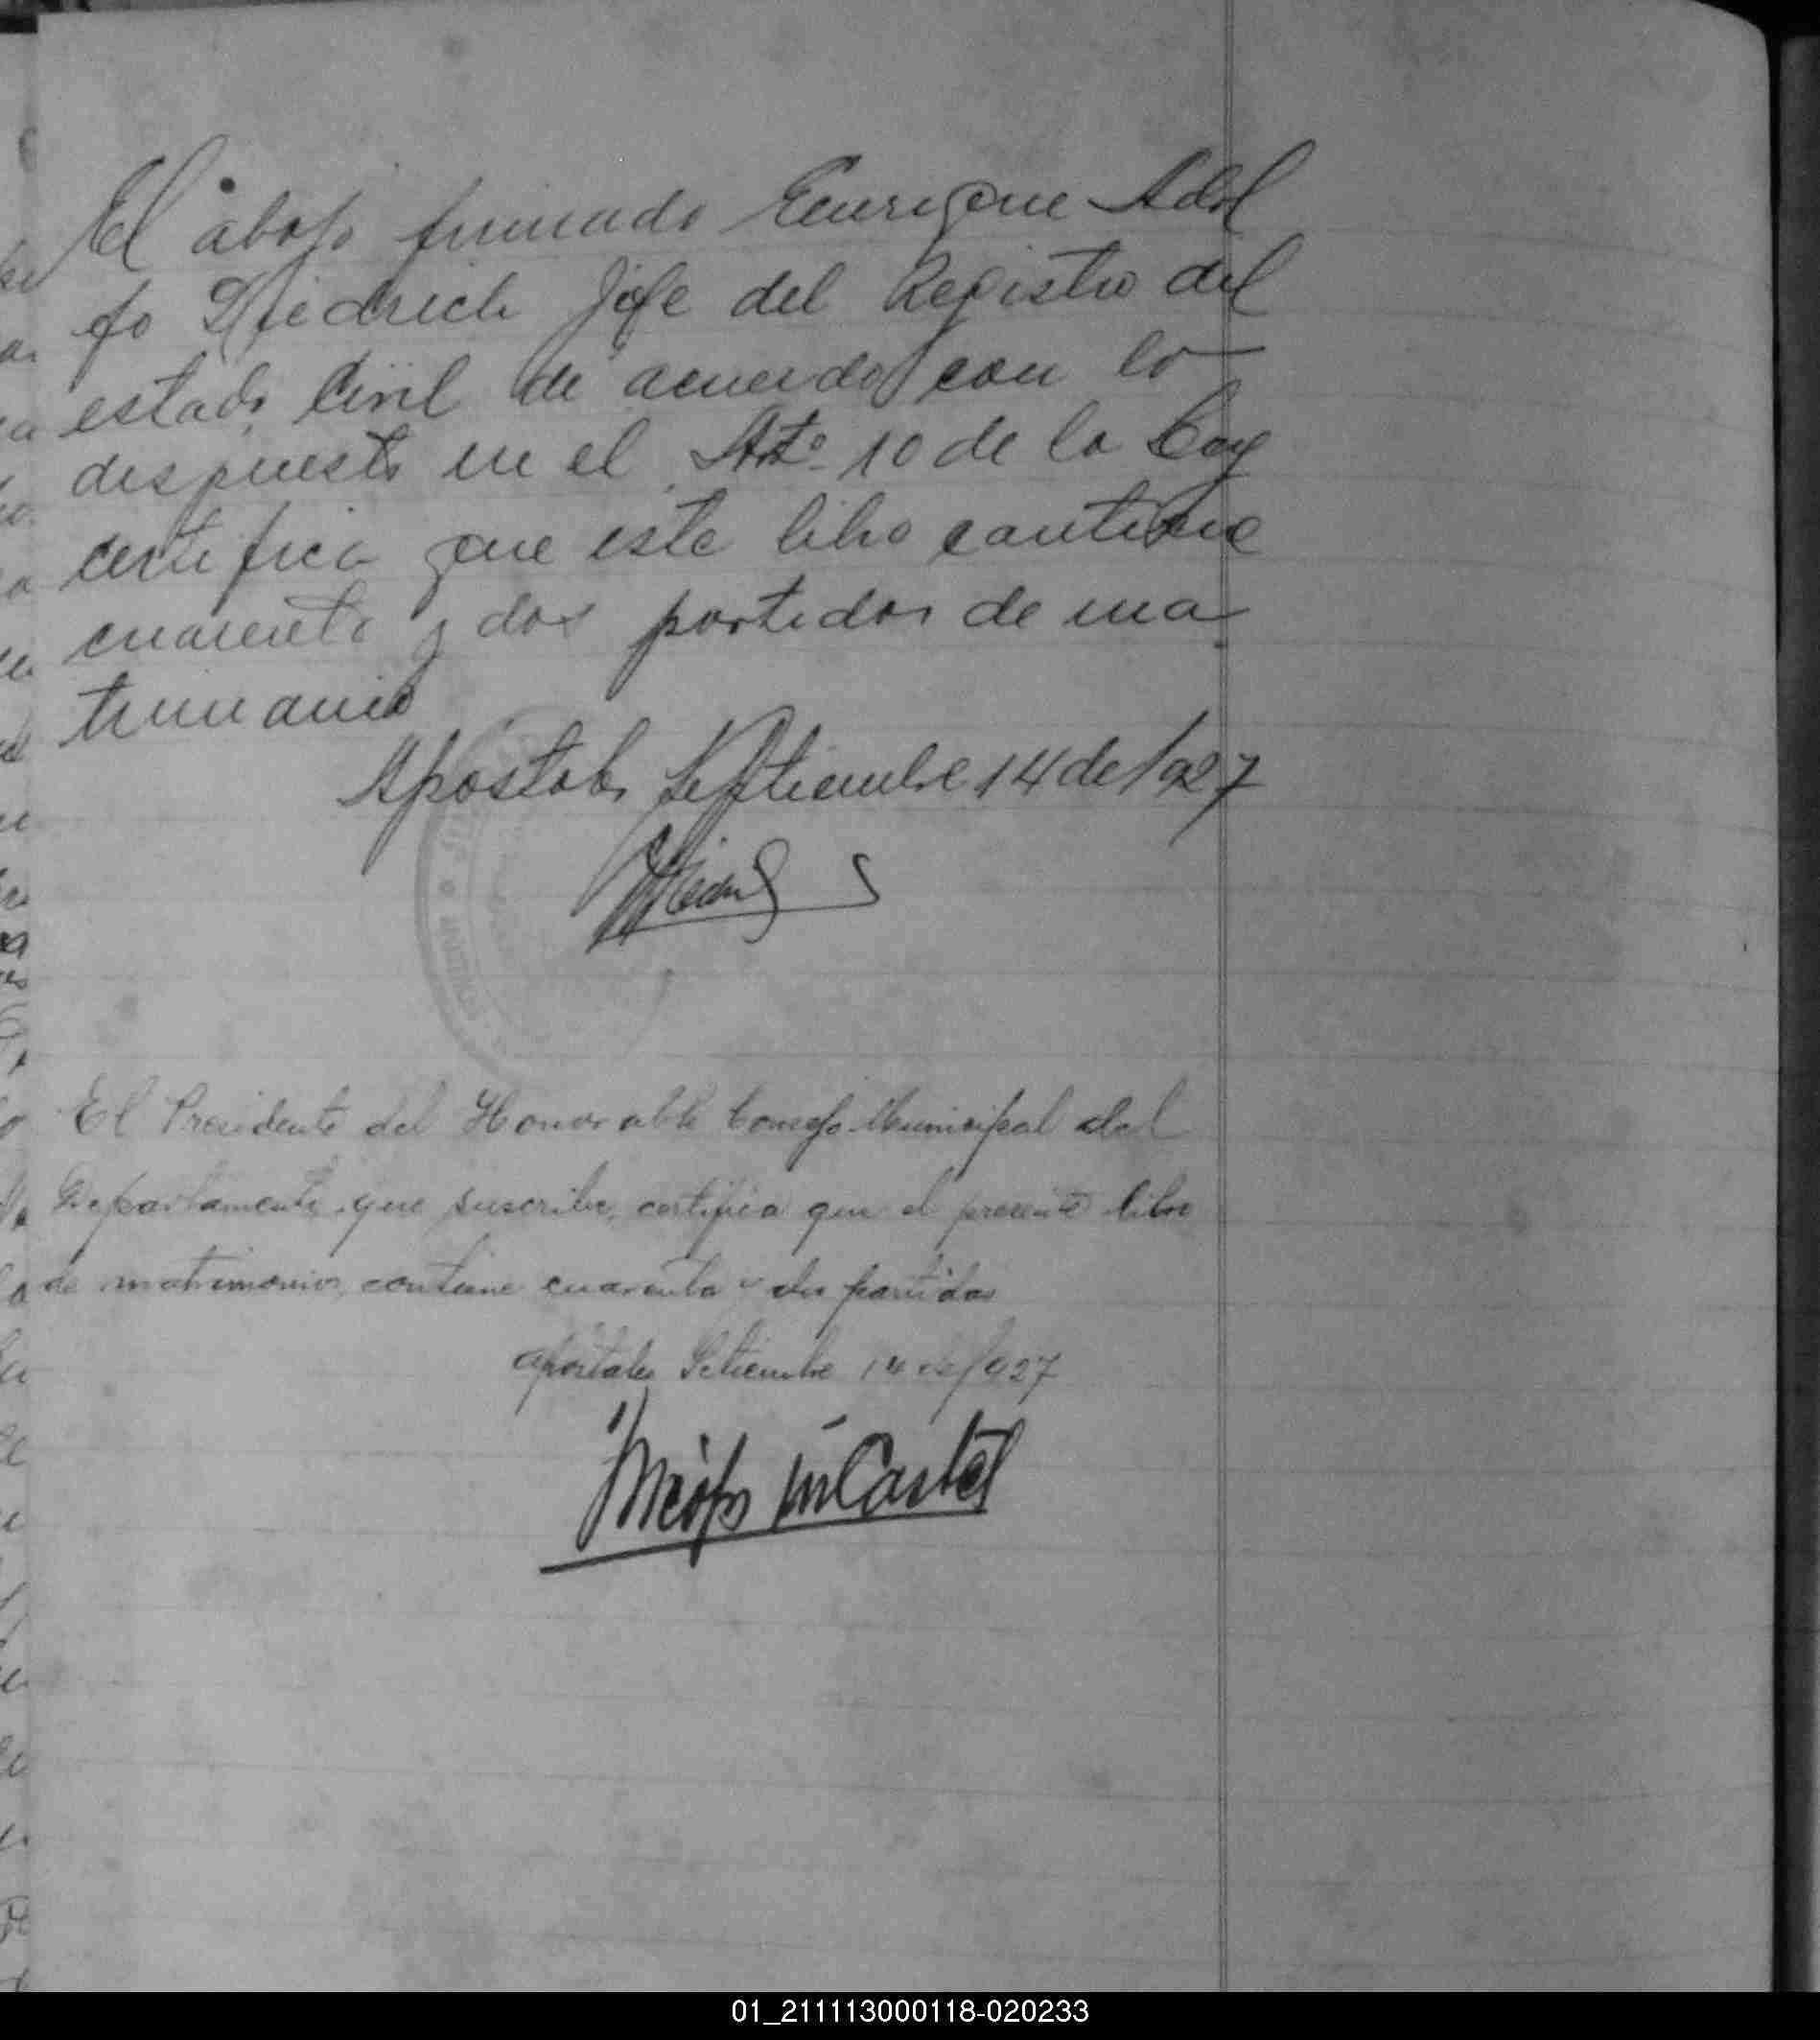 El abajo firmado Enrique Adol
fo Diedrich Jefe del Registro del
estado Civil de acuerdo con lo
dispuesto en el Arto. 10 de la Ley
certifica que este libro contiene
cuarenta y dos partidas de ma
trimonio
Apostoles Septiembre 14 de 1927
El Presidente del Honorable Consejo Municipal del
Departamento que suscribe, certifica que el presente libro
de matrimonios, contiene cuarenta y dos partidas
Apostoles Setiembre 14 de 1927
01_211113000118-020233